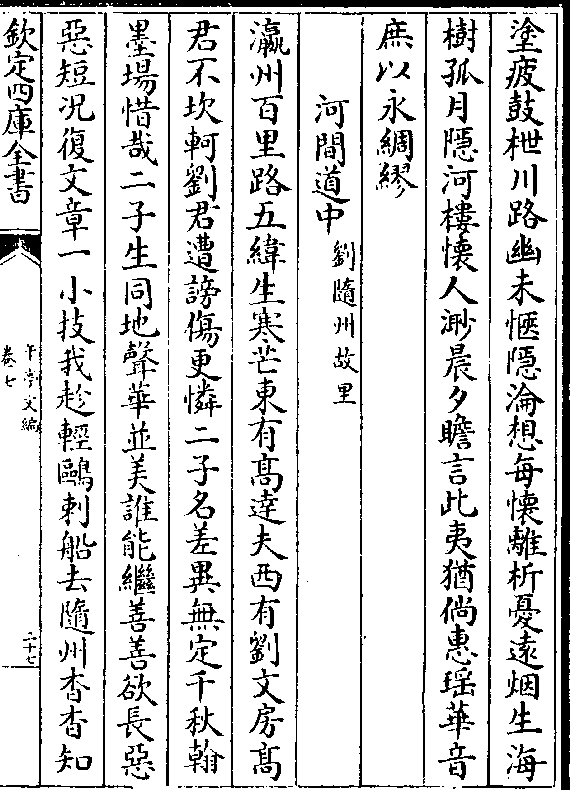 塗疲鼓枻川路幽未愜隱淪想每懷離析憂遠烟生海
樹孤月隱河樓懷人渺晨夕瞻言此夷猶倘惠瑶華音
庶以永綢繆
河間道中劉隨州故里
瀛州百里路五緯生寒芒東有髙達夫西有劉文房髙
君不坎軻劉君遭謗傷更憐二子名差異無定千秋翰
墨場惜哉二子生同地聲華並美誰能繼善善欲長惡
惡短况復文章一小技我趁輕鷗刺船去隨州杳杳知
欽定四庫全書
午亭文編
卷七
二十七